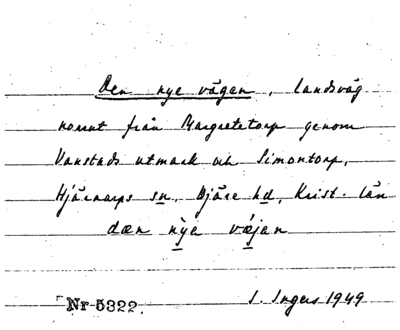 Den nye vägen, landsväg
norrut från Margretetorp genom
Vanstads utmark och Simontorp,
Hjärnarps sn, Bjäre hd, Krist. län
dæn nỳa væ̀jan
Nr 5322.
I. Ingers 1949